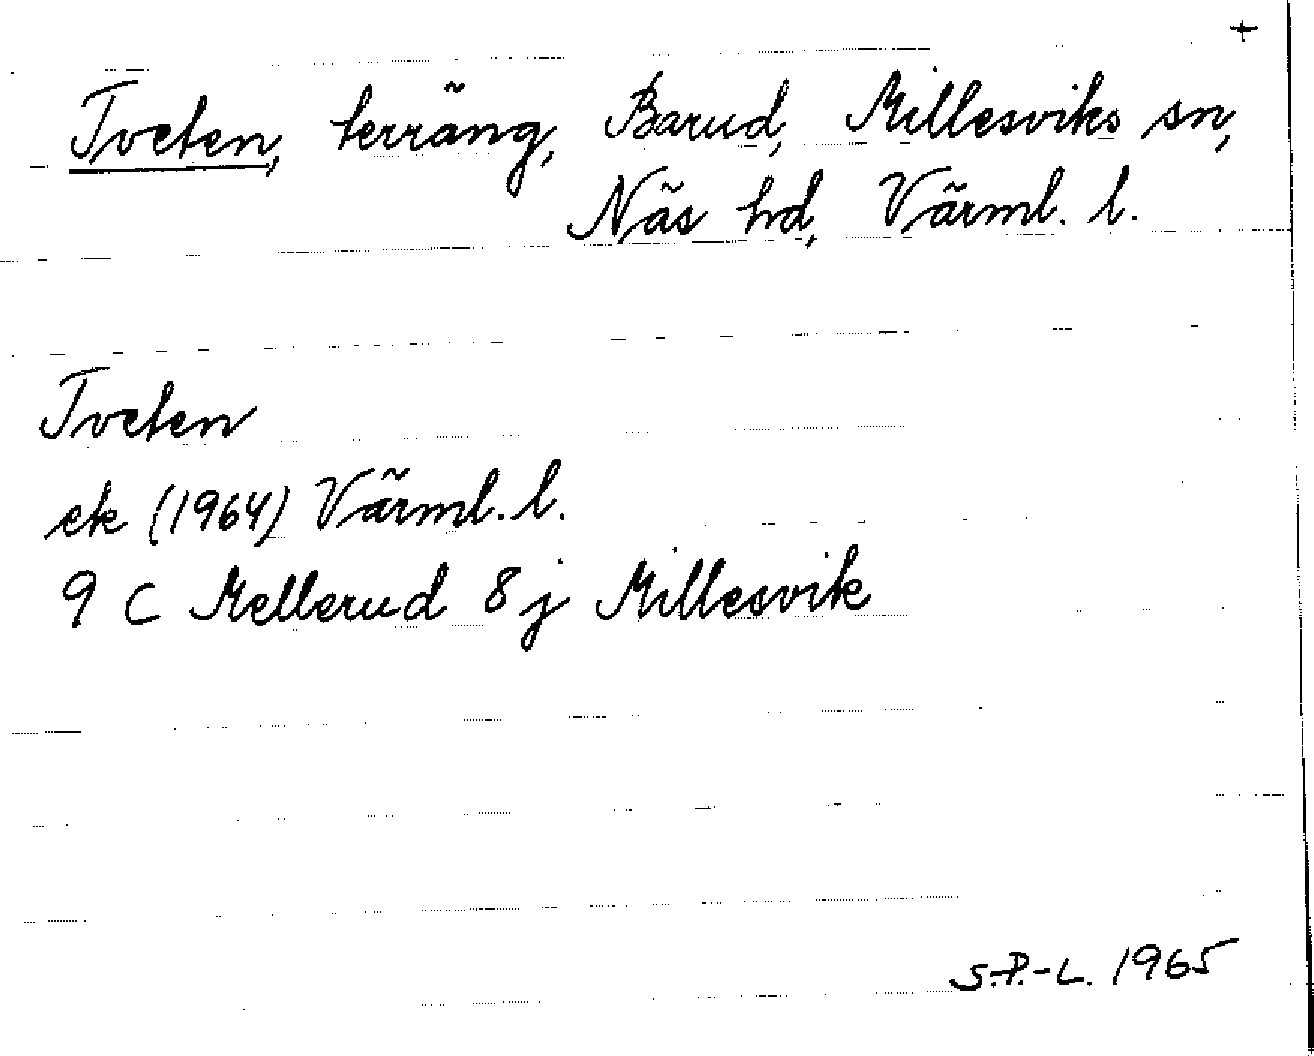 +
Tveten, terräng, Barud, Millesviks sn,
Näs hd, Värml. l.
Tveten
ek (1964) Värml. l.
9 C Mellerud 8 j Millesvik
S.P.-L. 1965